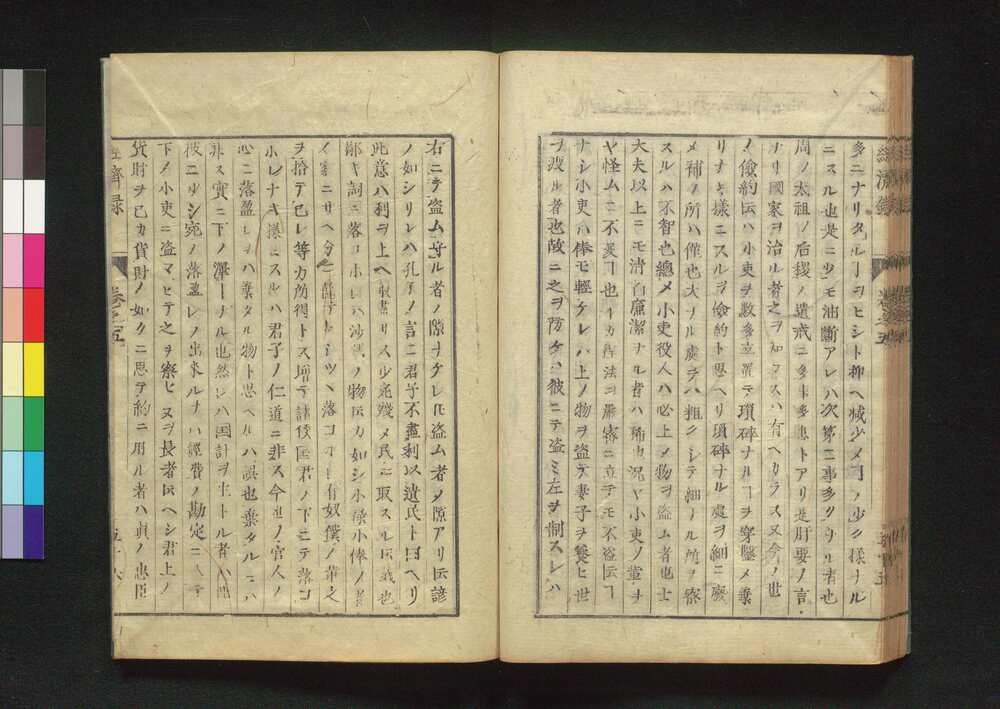 多ニナリタルヿヲヒシト抑ヘ減少メ叓ノ少ク様ナル
ニスル也是ニ少モ油斷アレハ次第ニ事多クナリ者也
周ノ太祖ノ后稷ノ遺戒ニ多事多患トアリ是肝要ノ言
ナリ國家ヲ治ル者之ヲ知ラスハ有ヘカラス又今ノ世
ノ儉約ハ小吏ヲ數多立置テ瑣碎ナルヿヲ穿鑿メ棄
リナキ様ニスルヲ儉約ト思ヘリ瑣碎ナル處ヲ細ニ廢
メ補ノ所ハ僅也大ナル處ヲハ粗クシテ細ノル所ヲ察
スルハ不智也總メ小吏役人ハ必上メ物ヲ盗ム者也士
大夫以上ニモ清白廉潔ナル者ハ稀也况ヤ小吏ノ輩ヲ
ヤ怪ムニ不足ヿ也イカ程法ニ嚴密ニ立テモ不盗ヿ
ナシ小吏ハ俸モ輕ケレハ上ノ物ヲ盗テ妻子ヲ養ヒ世
ヲ渡ル者也故ニ之ヲ防ケハ彼ニテ盗ミ左ヲ制スレハ
右ニテ盗ム守ル者ノ隙ナケレ盗ム者ノ隙アリ諺
ノ如シリレハ孔子ノ言ニ君子不盡利以遺民ト曰ヘリ
此意ハ利ヲ上ヘ取盡リス少宛殘メ民ニ取スル義也
鄙キ詞ニ落コホレハ沙汰ノ物如シ小祿小俸ノ者
イ家ニサヘ分ニ隨テ少シツヽ落コホレ有奴僕ノ輩之
ヲ拾テ己レ等カ所得トス増テ諸侯國君ノ下ニテ落コ
ホレナキ様ニスルハ君子ノ仁道ニ非ス今世ノ官人ノ
心ニ落盈レヲハ棄タル物ト思ヘルハ誤也棄タルニハ
非ス實ニ下ノ澤トナル也然レハ国計ヲ主トル者ハ
彼ニ少シ宛ノ落盈レノ出來ルヲハ經費ノ勘定ニ入テ
下メ小吏ニ盗マセテ之ヲ察セヌヲ長者ヘシ君上ノ
貨財ヲ己カ貨財ノ如クニ思テ約ニ用ル者ハ眞ノ忠臣
經濟録
卷之五
五十六